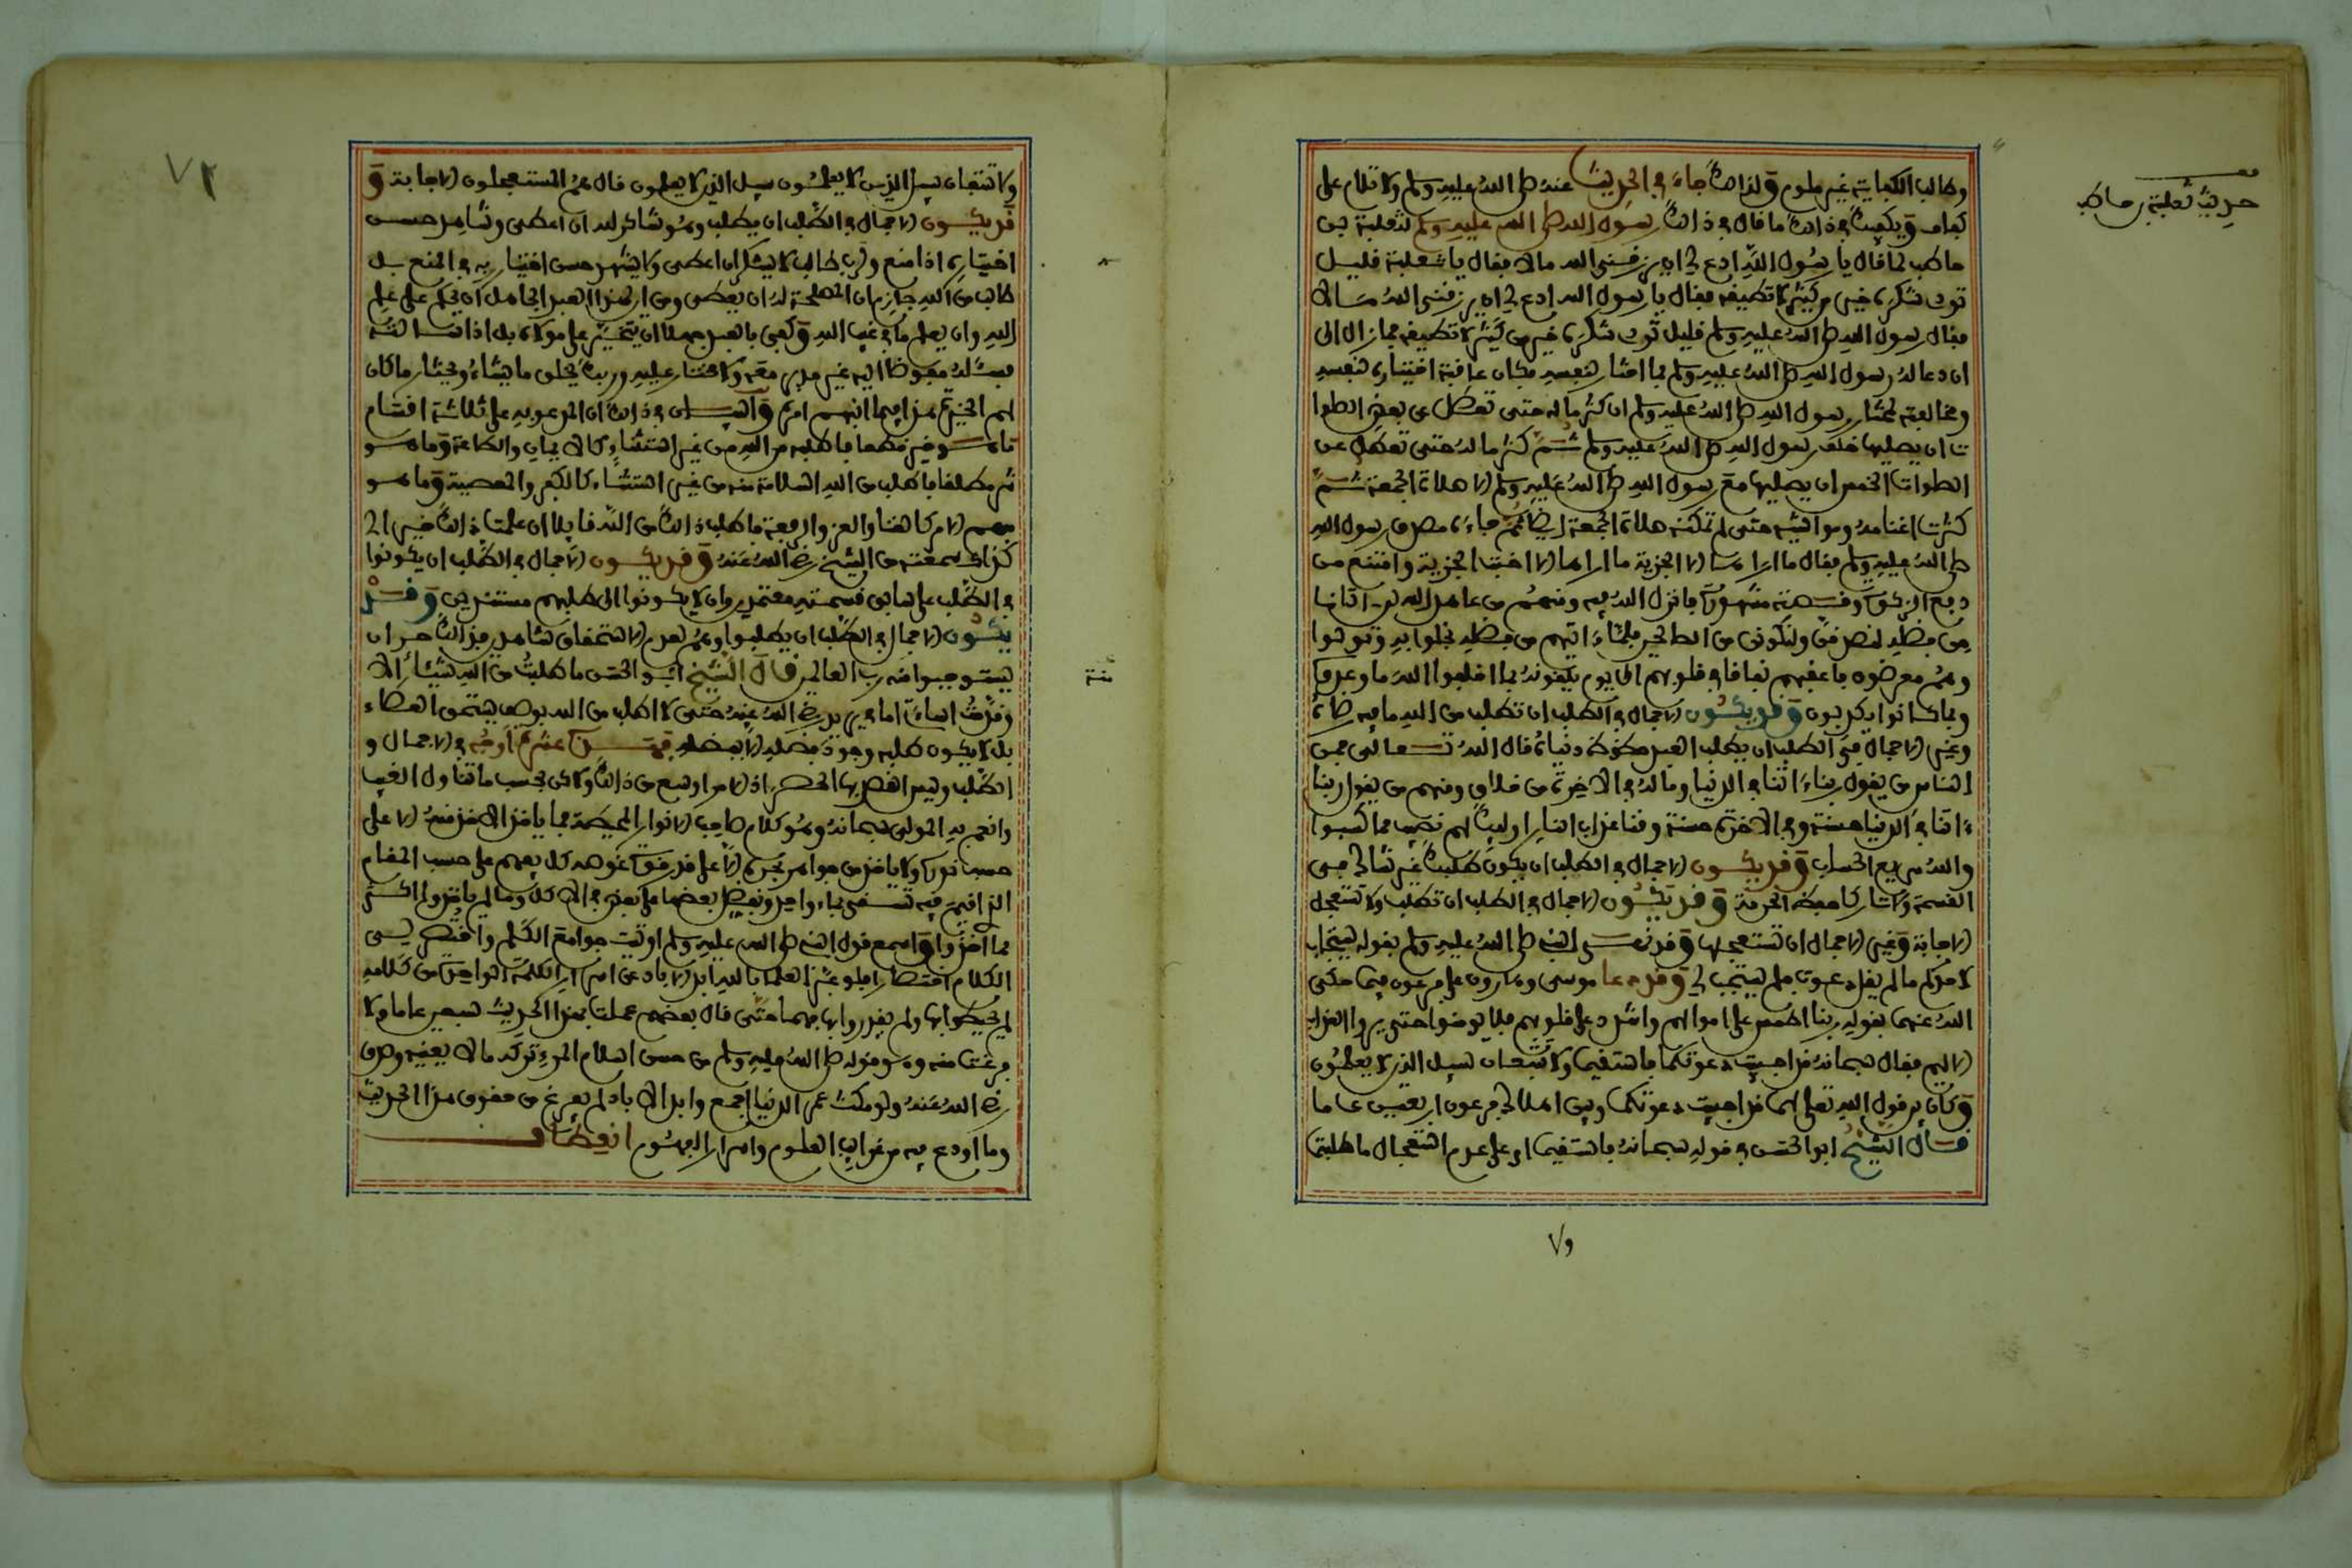 حديث ثعلبة بن حاطب
وطالب الكفاية غير ملوم ولذلك جاء في الحديث عنه صلى الله عليه وسلم ولا تلام على
كفاف ويكفيك في ذلك ما قال في ذلك رسول الله صلى الله عليه وسلم لثعلبة بن
حاطب لما قال يا رسول الله ادع لي ان يرزقني الله مالا فقال يا ثعلبة قليل
تودي شكره خير من كثير لا تطيقه فقال يا رسول الله ادع لي ان يرزقني الله مالا
فقال رسول الله صلى الله عليه وسلم قليل تودي شكره خير من كثير لا تطيقه فما زال الى
ان دعا له رسول الله صلى الله عليه وسلم بما اختار لنفسه فكان عاقبة اختياره لنفسه
ومخالفته لمختار رسول الله صلى الله عليه وسلم ان كثر ماله حتى تعطل عن بعض الصلوا
ت ان يصليها خلف رسول الله صلى الله عليه وسلم ثم كثر ماله حتى تعطل عن
الصلوات الخمس ان يصليها مع رسول الله صلى الله عليه وسلم الا صلاة الجمعة ثم
كثرت اغنامه ومواشيه حتى لم تمكنه صلاة الجمعة ايضا ثم جاءه مصدق رسول الله
صلى الله عليه وسلم فقال ما اراها الا الجزية ما اراها الا اخت الجزية وامتنع من
دفع الزكوة وقصته مشهورة فانزل الله فيه ومنهم من عاهد الله لئن اتانا
من فضله لنصدقن ولنكونن من الصالحين فلما ءاتيهم من فضله بخلوا به وتولوا
وهم معرضون فاعقبهم نفاقا في قلوبهم الى يوم يلقونه بما اخلفوا الله ما وعدوه
وبما كانوا يكذبون وقد يكون الاجمال في الطلب ان تطلب من الله ما فيه رضاه
وغير الاجمال في الطلب ان يطلب العبد حظوظ دنياه قال الله تعالى فمن
الناس من يقول ربنا ءاتنا في الدنيا وماله في الاخرة من خلاق ومنهم من يقول ربنا
ءاتنا في الدنيا حسنة وفي الاخرة حسنة وقنا عذاب النار اوليك لهم نصيب مما كسبوا
والله سريع الحساب وقد يكون الاجمال في الطلب ان يكون طلبك غير شاك في
القسمة ولا تارك لحفظ الحرمة وقد يكون الاجمال في الطلب ان تطلب ولا تستعجل
الاجابة وغير الاجمال ان تستعجلها وقد نهى النبي صلى الله عليه وسلم بقوله يستجاب
لاحدكم ما لم يقل دعوت فلم يستجب لي وقد دعا موسى وهارون على فرعون فيما حكى
الله عنهما بقوله ربنا اطمس على اموالهم واشدد على قلوبهم فلا يومنوا حتى يروا العذاب
الاليم فقال سبحانه قد اجيبت دعوتكما فاستقيما ولا تتبعان سبيل الذين لا يعلمون
وكان بين قول الله تعلى لهما قد اجيبت دعوتكما وبين اهلاك فرعون اربعين عاما
قال الشيخ ابو الحسن في قوله سبحانه فاستقيما اي على عدم استعجال ما طلبتما
٧٢
ولا تتبعان سبيل الذين لا يعلمون سبيل الذين لا يعلمون قال هم المستعجلون الاجابة و
قد يكون الاجمال في الطلب ان يطلب وهو شاكر لله ان اعطى وشاهد حسن
اختياره اذا منع ورب طالب لا يشكر ان اعطى ولا يشهد حسن اختياره في المنع بل
طالب من الله جازم ان المصلحة له ان يعطى ومن اين لهذا العبد الجاهل ان يحكم على علم
الله وان يعلم ما في غيب الله وكفى بالعبد جهلا ان يتخير على مولاه بل اذا سالته
فسئله مفوضا اليه غير مدبر معه ولا مختار عليه وربك يخلق ما يشاء ويختار ما كان
لهم الخيرة هذا فيما ابهم امره والبيان في ذلك ان المدعو به على ثلاثة اقسام
ما هو خير قطعا فاطلبه من الله من غير استثناء كالايمان والطاعة وما هو
شر مطلقا فاطلب من الله السلامة منه من غير استثناء كالكفر والمعصية وما هو
مبهم الامر كالغنا والعز والرفعة فاطلب ذلك من الله قايلا ان علمت ذلك خير الي
كذلك سمعته من الشيخ رضي الله عنه وقد يكون الاجمال في الطلب ان يكونوا
في الطلب على سابق قسمته معتمدين وان لا يكونوا الى طلبهم مستندين وقد
يكون الاجمال في الطلب ان يطلبوا وهم لعدم الاستحقاق شاهدين فذلك احرى ان
يستوجبوا منه رب العالمين قال الشيخ ابو الحسن ما طلبت من الله شيئا الا
وقدمت اساءتي امامي يريد رضي الله عنه حتى لا اطلب من الله بوصف يستحق العطاء
بل لا يكون طلبه وجود فضله الا بفضله فهذه عشرة اوجه في الاجمال و
الطلب وليس القصد بها الحصر اذ الامر اوسع من ذلك ولاكن بحسب ما تناول الغيب
وانعم به المولى سبحانه وهو كلام صاحب الانوار المحيطة فما ياخذ الاخذ منه الا على
حسب نوره ولا ياخذ من جواهر بحره الا على قدر قوة غوصه كل يفهم على حسب المقام
الذي اقيم فيه تسقى بماء واحد ونفضل بعضها على بعض في الاكل وما لم ياخذوه اكثر
مما اخذوا واسمع قول النبي صلى الله عليه وسلم اوتيت جوامع الكلم واختصر لي
الكلام اختصارا فلو عبر العلماء بالله ابد الاباد عن اسرار الكلمة الواحدة من كلامه
لم يحيطوا بها ولم يقدروها فهما حتى قال بعضهم عملت بهذا الحديث سبعين عاما ولا
فرغت منه وهو قوله صلى الله عليه وسلم من حسن اسلام المرء تركه مالا يعنيه وصدق
رضي الله عنه ولو مكث عمر الدنيا اجمع وابد الاباد لم يفرغ من حقوق هذا الحديث
وما اودع فيه من غرايب العلوم واسرار الفهوم انعطاف